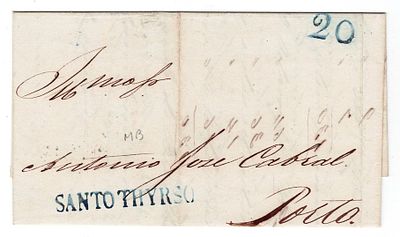 20
Illmo Sr
MB
Antonio Jose Cabral
SANTO THYRSO
Porto.